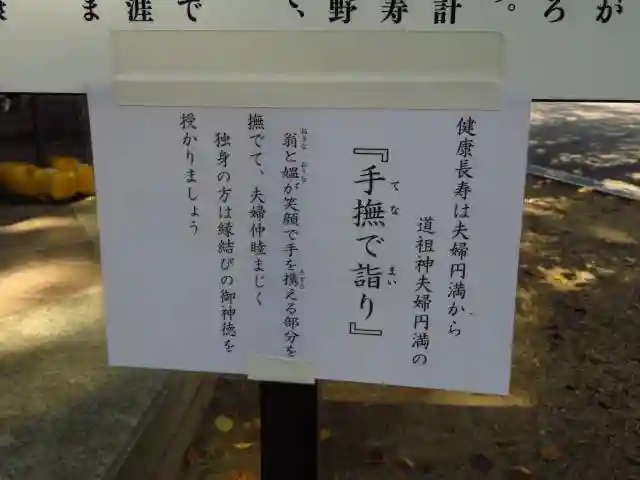 健康長寿は夫婦円満から
道祖神夫婦円満の
『手撫で詣り』
てな まい
翁と媼が笑顔で手を携える部分を
おきな おうな たずさ
撫でて、夫婦仲睦まじく
独身の方は縁結びの御神徳を
授かりましょう